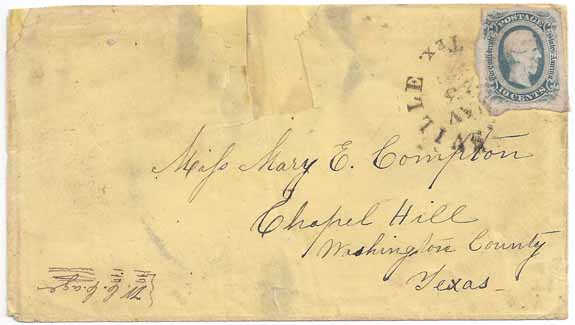 POSTAGE
The Confederate States of America
10 CENTS
VILLE Tex
Miss Mary E. Compton
Chapel Hill
Washington County
Texas.